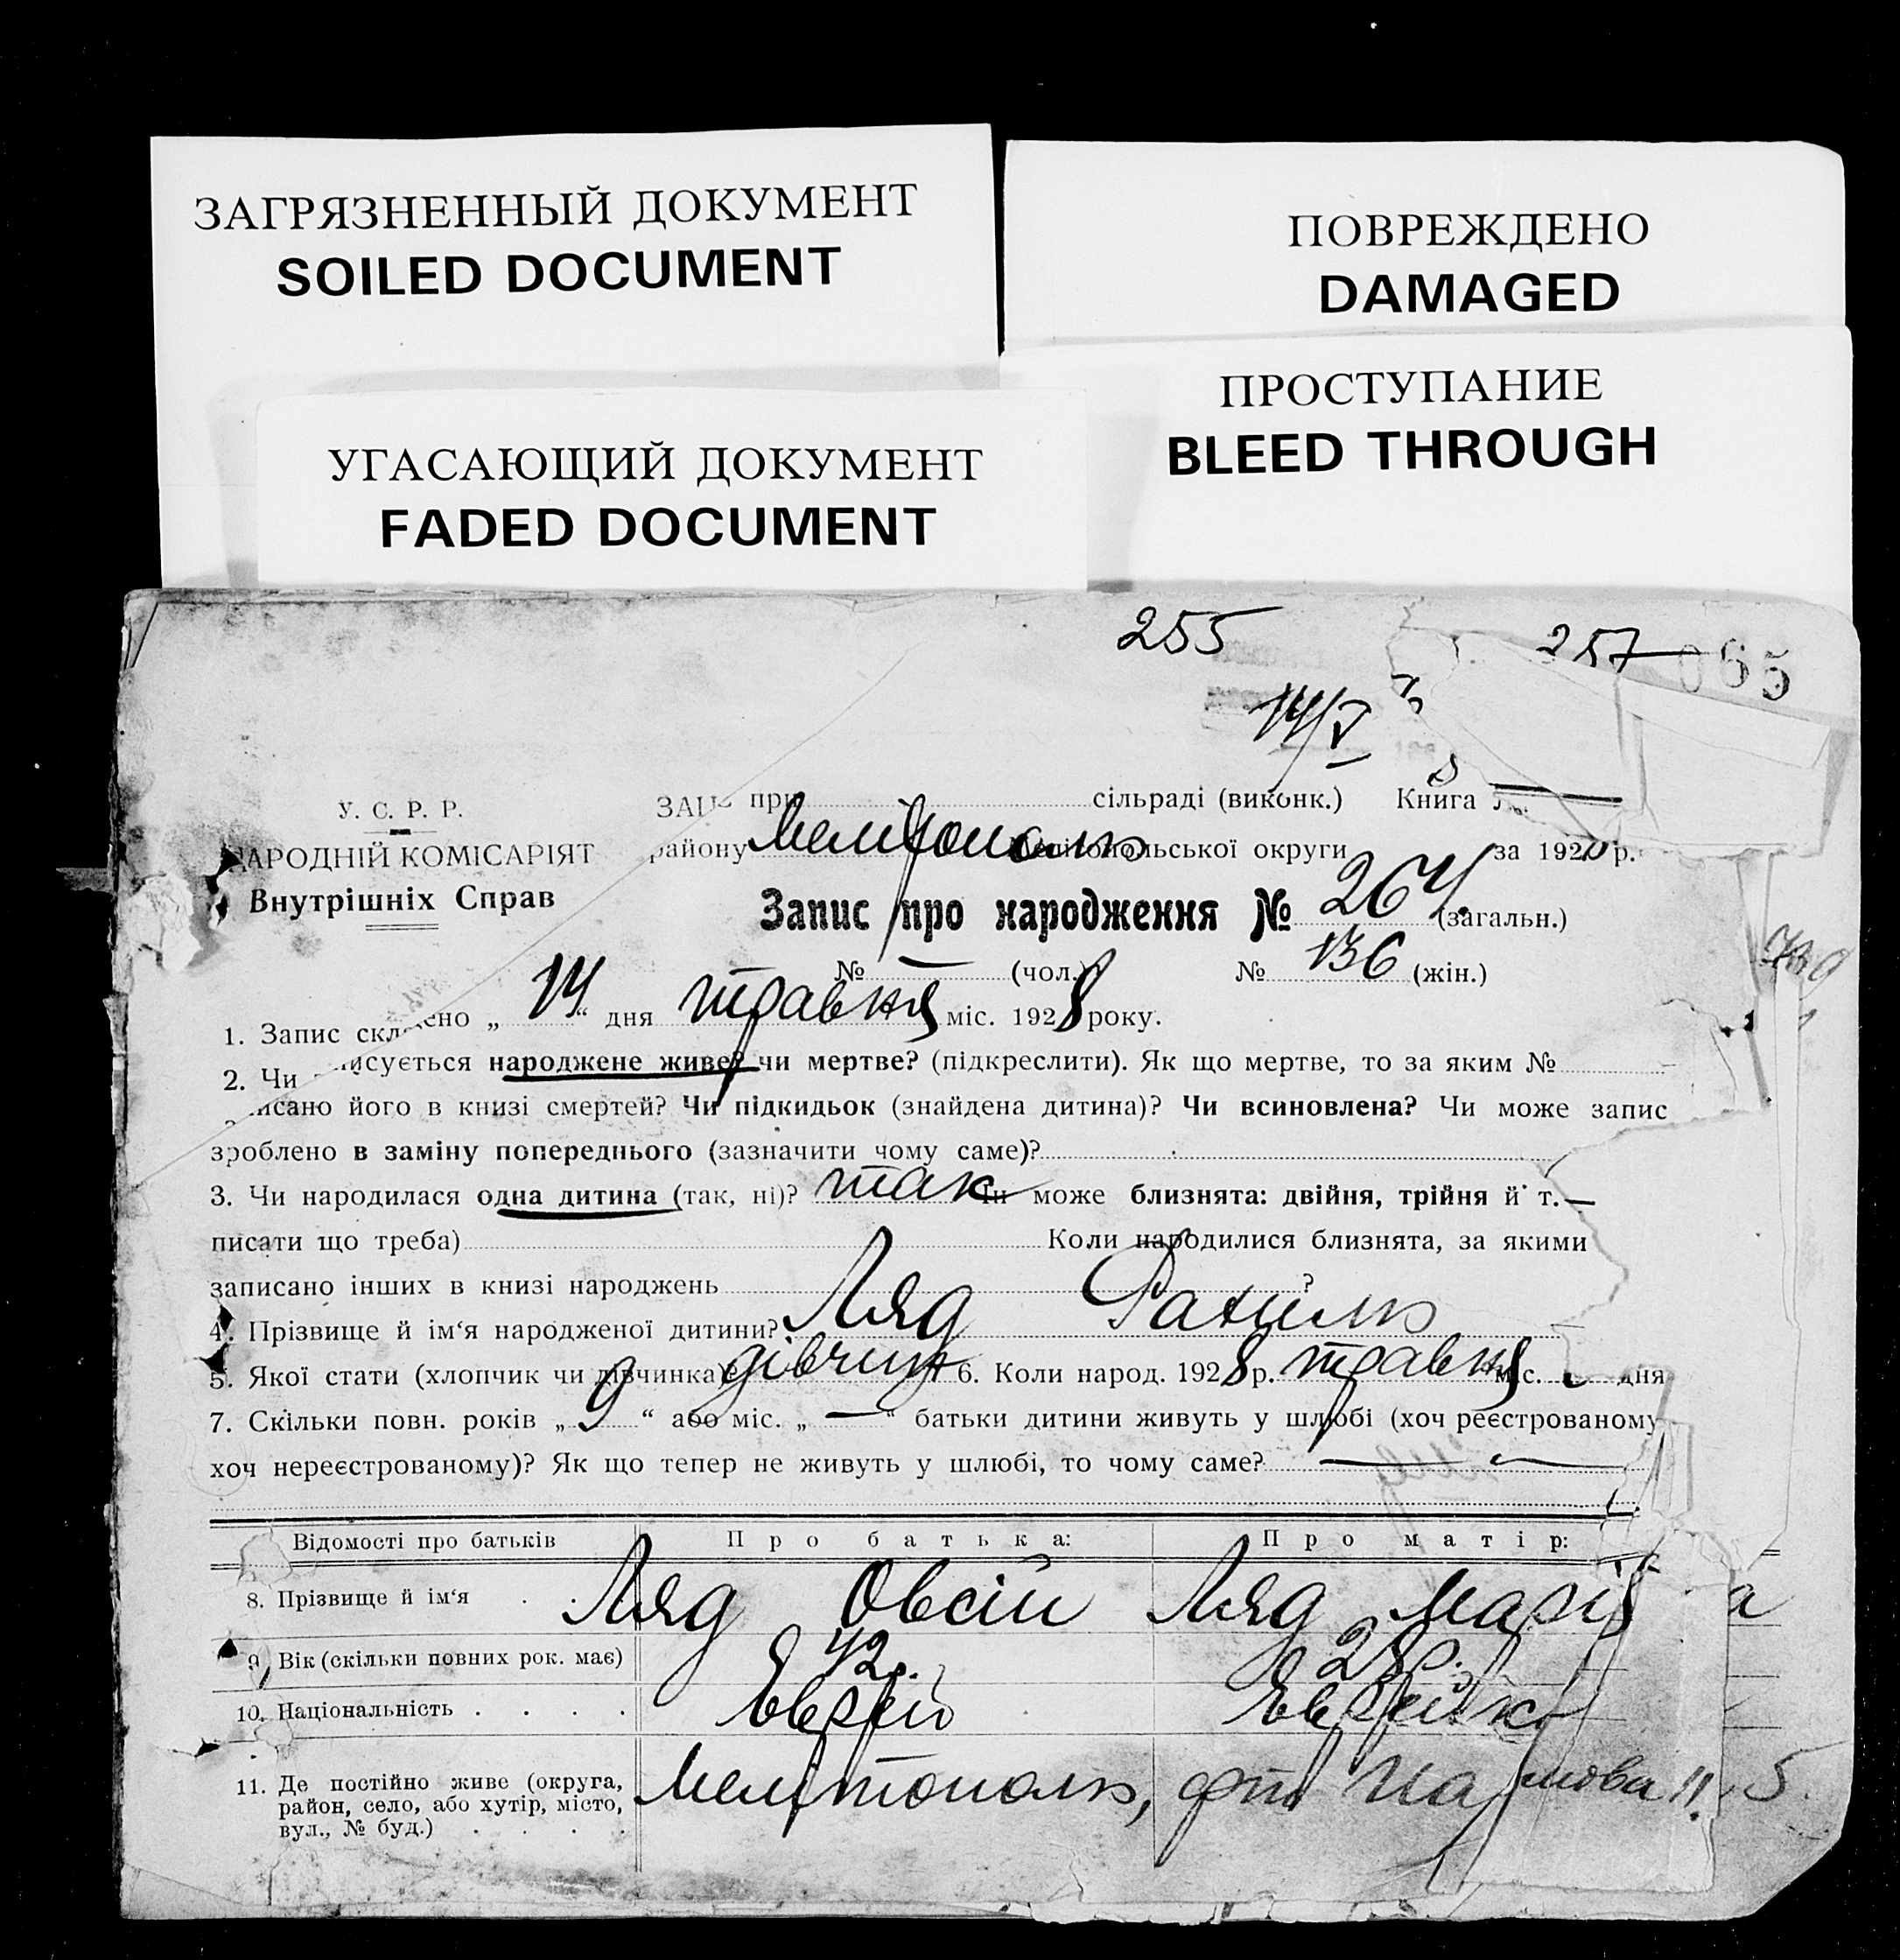 ЗАГРЯЗНЕННЫЙ ДОКУМЕНТ
SOILED DOCUMENT
ПОВРЕЖДЕНО
DAMAGED
ПРОСТУПАНИЕ
BLEED THROUGH
УГАСАЮЩИЙ ДОКУМЕНТ
FADED DOCUMENT
255 257 065
14/V
У. С. Р. Р.
НАРОДНІЙ КОМІСАРІЯТ
Внутрішніх Справ
ЗАГС при сільраді (виконк.) Книга
району Мелітополь Мелітопольської округи за 1928 р.
Запис про народження № 264. (загальн.)
№ — (чол.) № 136 (жін.)
1. Запис складено „ 14 “ дня травня міс. 1928 року.
2. Чи записується народжене живе? чи мертве? (підкреслити). Як що мертве, то за яким №
записано його в книзі смертей? Чи підкидьок (знайдена дитина)? Чи всиновлена? Чи може запис
зроблено в заміну попереднього (зазначити чому саме)?
3. Чи народилася одна дитина (так, ні)? так Чи може близнята: двійня, трійня й т. —
писати що треба) Коли народилися близнята, за якими
записано інших в книзі народжень ?
4. Прізвище й ім‘я народженої дитини? Ляд Рахиль
5. Якої стати (хлопчик чи дівчинка)? дівчин 6. Коли народ. 1928 р. травня міс. дня
7. Скільки повн. років „ 9 “ або міс. „ — “ батьки дитини живуть у шлюбі (хоч реєстрованому
хоч нереєстрованому)? Як що тепер не живуть у шлюбі, то чому саме? —
Відомості про батьків Про батька: Про матір:
8. Прізвище й ім‘я Ляд Овсій Ляд Марія
9. Вік (скільки повних рок. має) 42р. 28р.
10. Національність Еврей Еврейка
11. Де постійно живе (округа,
район, село, або хутір, місто,
вул., № буд.)
Мелітополь,